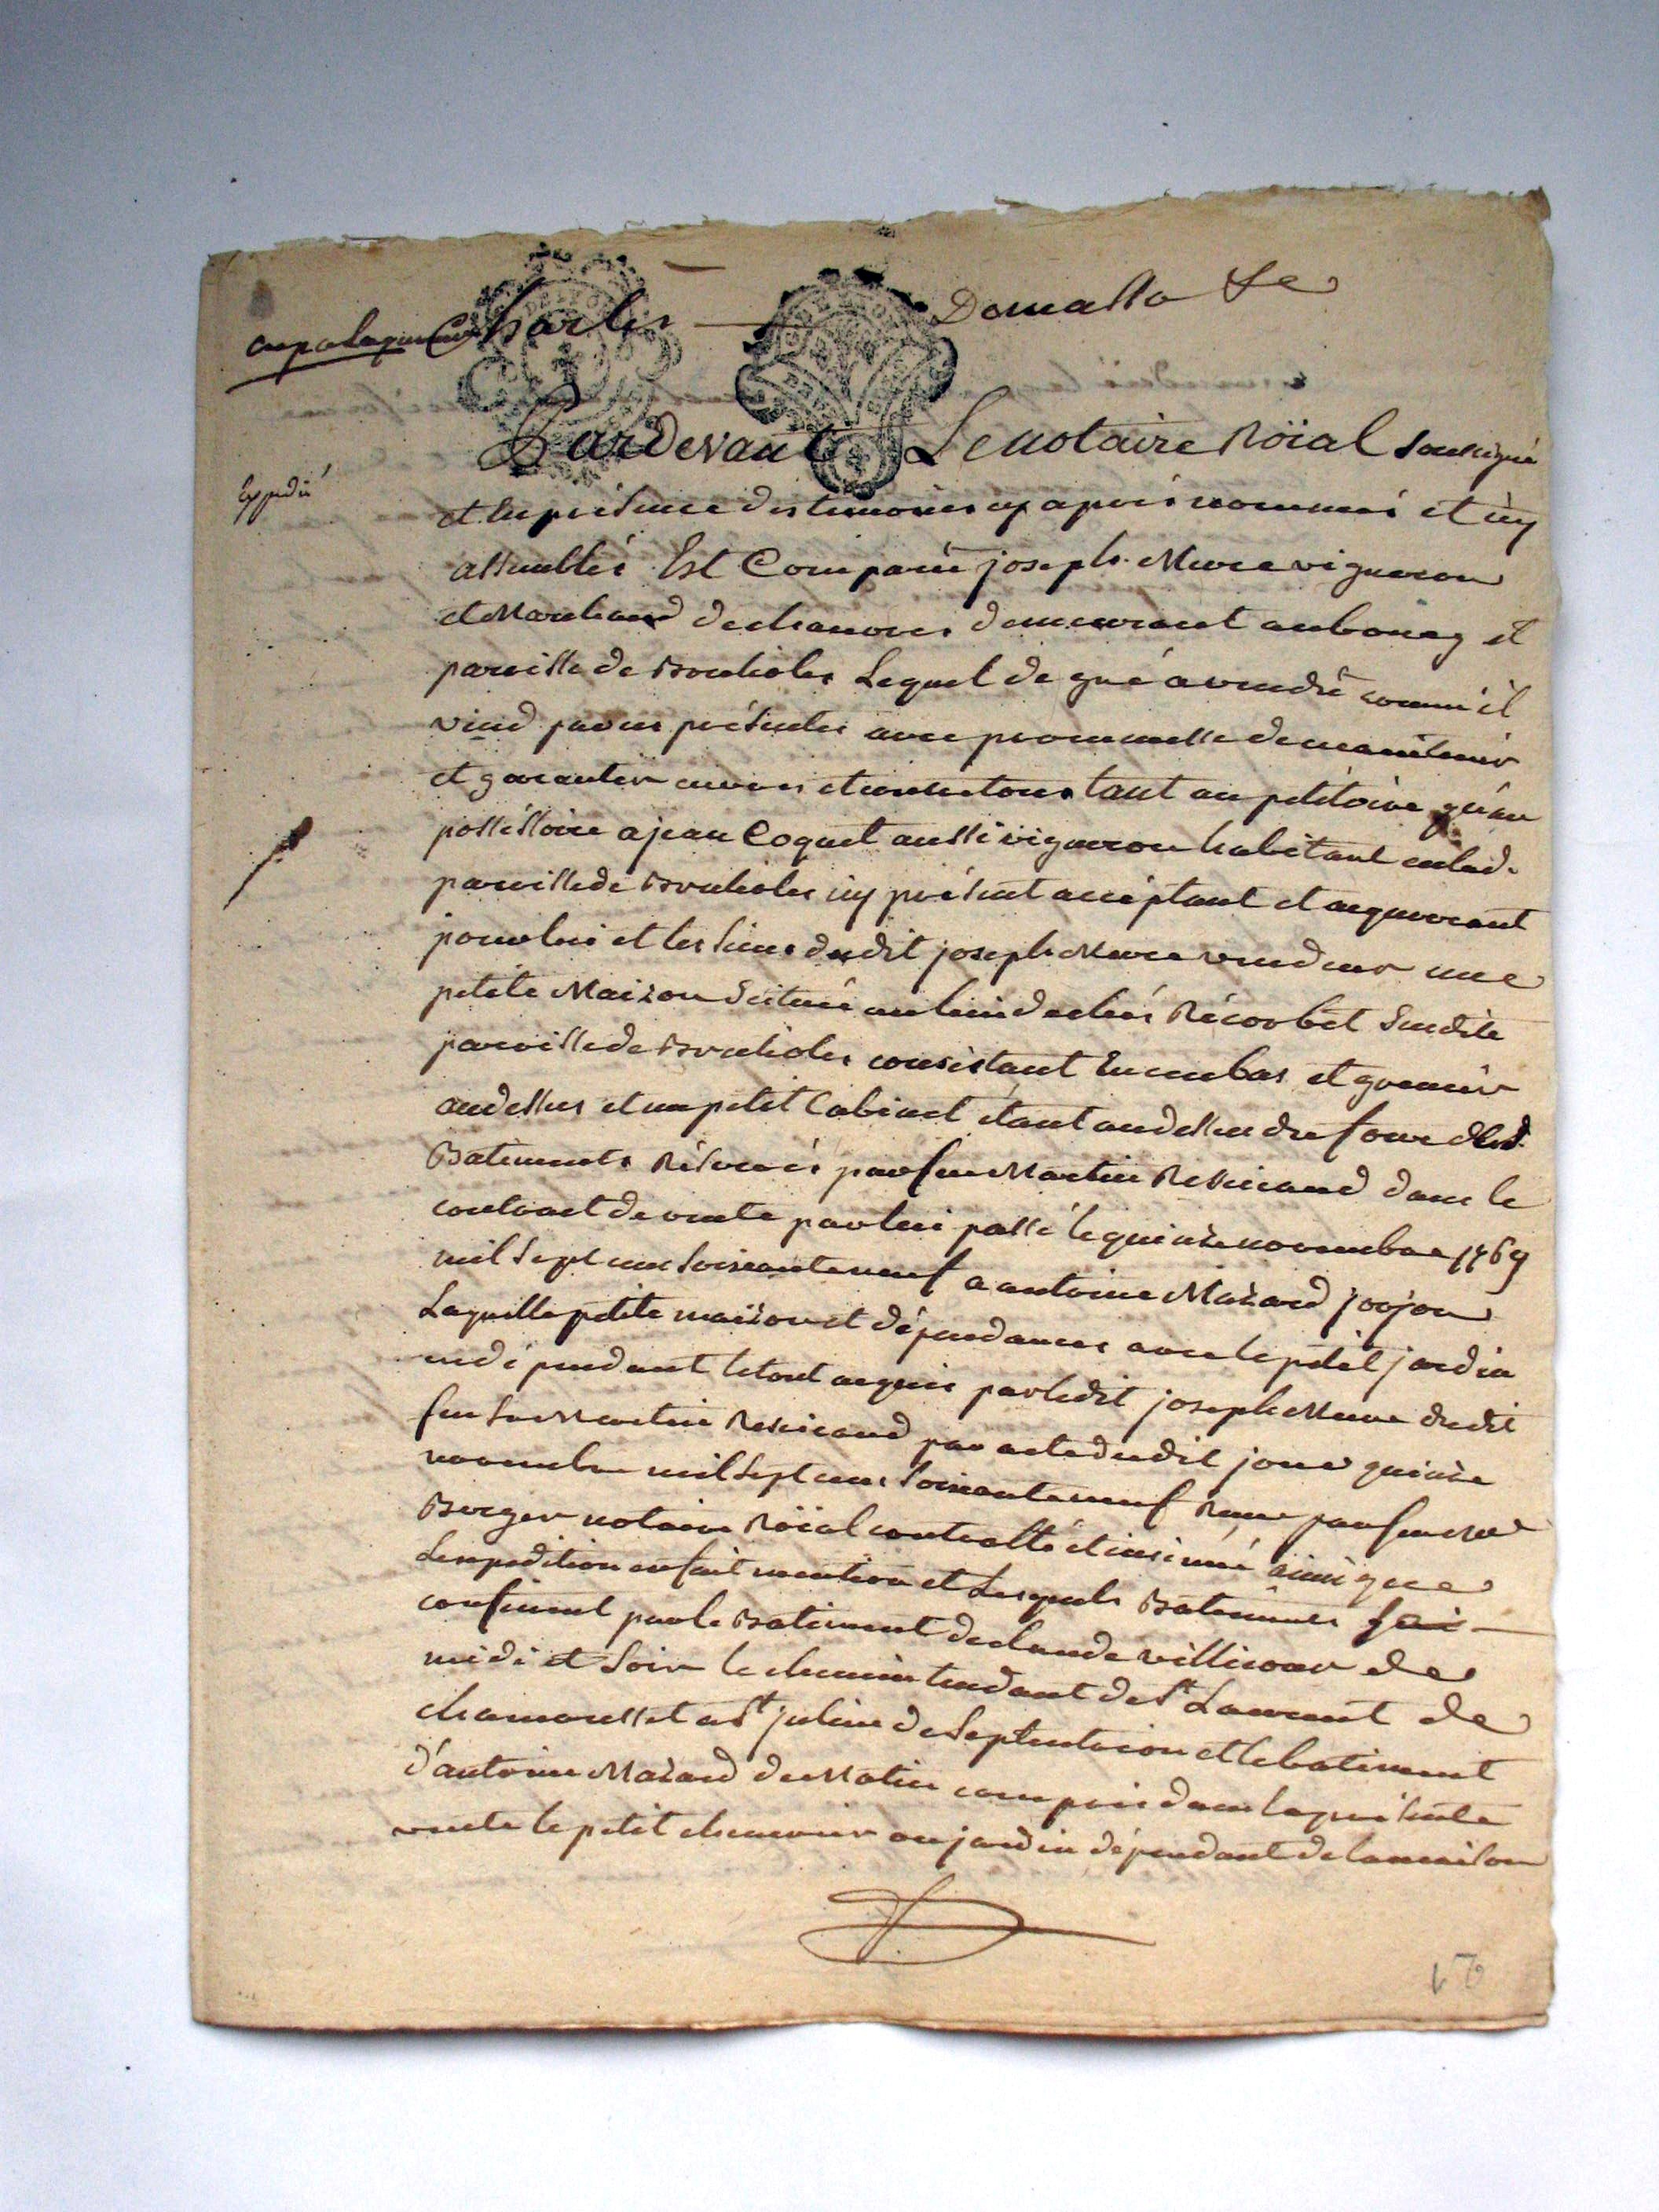 Charles Domasta
Pardevant Le notaire Röial soussigné
Expedié
et en présence des temoins cy après nommés et icy
assemblés Est Comparü joseph Mure vigneron
et Marchand de chanvres demeurant au bourg et
paroisse de Brulioles Lequel de gré a vendü comme il
vend par ces présentes avec promesse de maintenir
et garantir envers et contre tous tant au petitoire qu'au
possessoire a jean Coquet aussi vigneron habitant en lad.
paroisse de Brulioles icy présent acceptant et acquerant
pour lui et les siens dudit joseph Mure vendeur une
petite Maizon scituée au lieu de chés Récorbet susdite
paroisse de Brulioles consistant En un bas et grenier
au dessus et un petit Cabinet étant au dessus du four desd.
Batiments Réservés par feu Martin Ressicaud dans le
contract de vente par lui passé le quinze novembre 1769
mil sept cens soixante neuf a antoine Mazard jorjon
Laquelle petite maizon et dépendances avec le petit jardin
en dépendant le tout acquis par ledit joseph Mure dudit
feu Sr Martin Ressicaud par acte dudit jour quinze
novembre mil sept cens soixante neuf Reçu par feu Me
Berger notaire Röial controllé et insinué ainsi que
L'expedition en fait mention et Lesquels Batiments
confinent par le Batiment de claude villicour de
midi et soir le chemin tendant de St Laurent de
chamousset a St julien de septentrion et le batiment
d'antoine Mazard de Matin compris dans la présente
vente le petit chenevier ou jardin dépendant de la maison